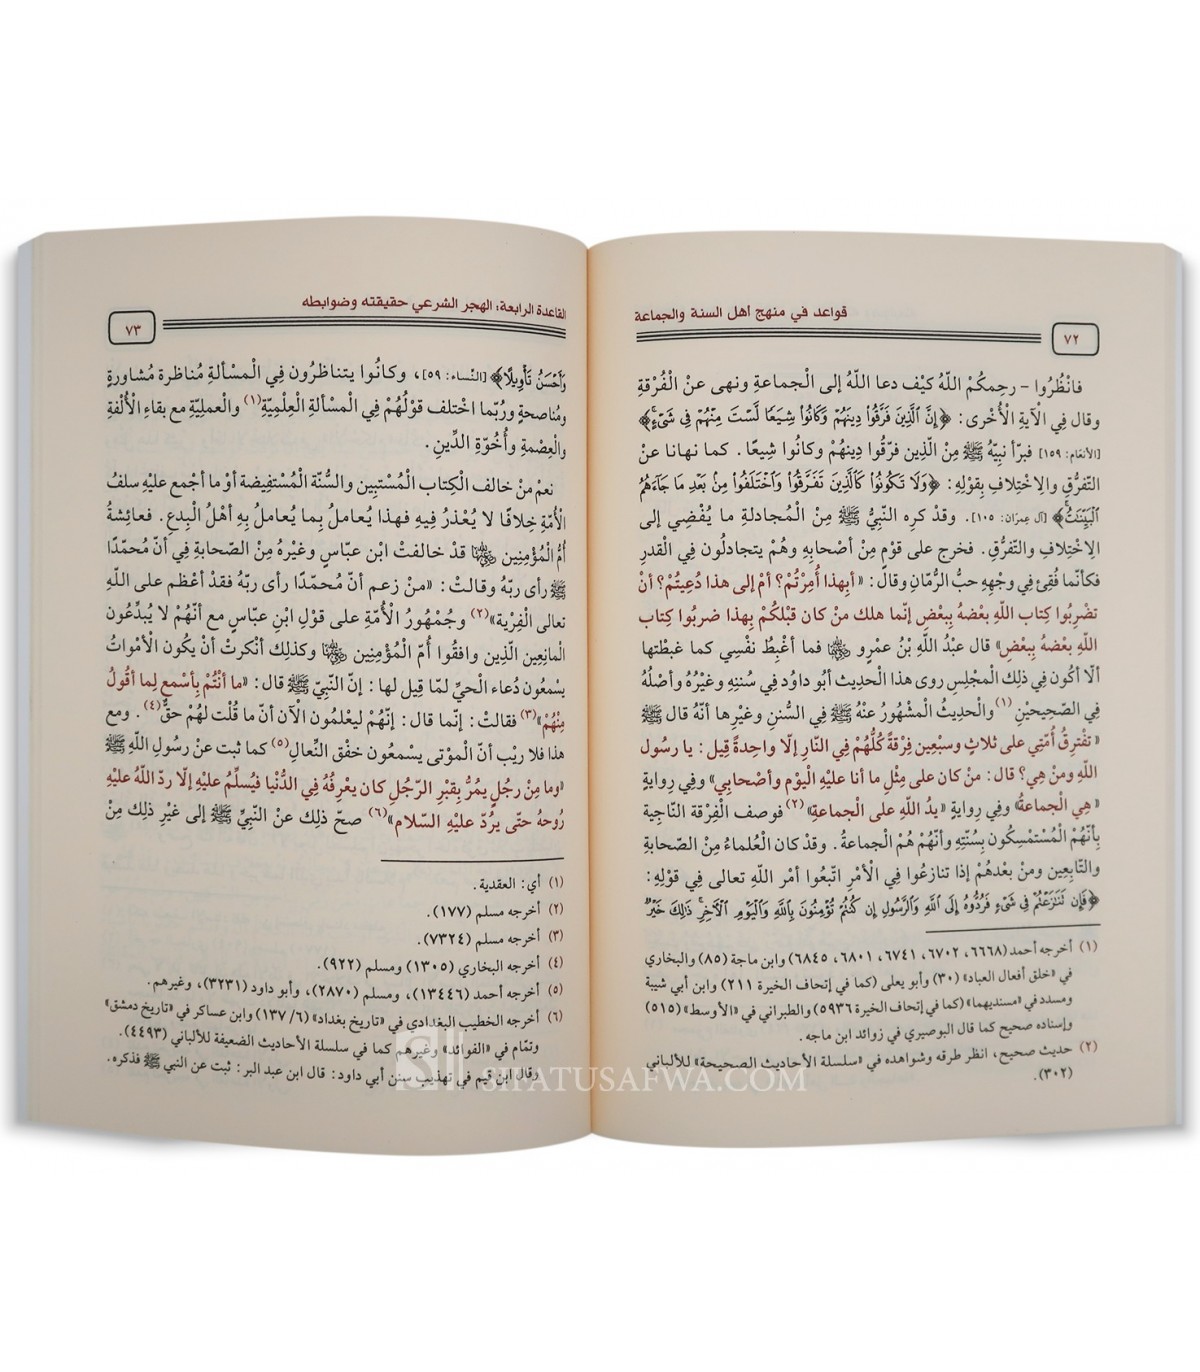 قواعد في منهج أهل السنة والجماعة
٧٢
فانْظُرُوا - رحِمكُمْ اللهُ كيْف دعا اللهُ إلى الْجماعةِ ونهى عنْ الْفُرْقةِ
وقال فِي الْآيةِ الْأُخْرى: ﴿إِنَّ الَّذِينَ فَرَّقُوا دِينَهُمْ وَكَانُوا شِيَعًا لَّسْتَ مِنْهُمْ فِي شَيْءٍ﴾
[الأنعَام: ١٥٩] فبرّأ نبِيّهُ ﷺ مِنْ الّذِين فرّقُوا دِينهُمْ وكانُوا شِيعًا. كما نهانا عنْ
التّفرُّقِ والِاخْتِلافِ بِقوْلِهِ: ﴿وَلَا تَكُونُوا كَالَّذِينَ تَفَرَّقُوا وَاخْتَلَفُوا مِنْ بَعْدِ مَا جَاءَهُمُ
الْبَيِّنَاتُ﴾ [آل عِمرَان: ١٠٥]. وقدْ كرِه النّبِيُّ ﷺ مِنْ الْمُجادلةِ ما يُفْضِي إلى
الِاخْتِلافِ والتّفرُّقِ. فخرج على قوْمٍ مِنْ أصْحابِهِ وهُمْ يتجادلُون فِي الْقدرِ
فكأنّما فُقِئ فِي وجْهِهِ حبُّ الرُّمّانِ وقال: «أبِهذا أُمِرْتُمْ؟ أمْ إلى هذا دُعِيتُمْ؟ أنْ
تضْرِبُوا كِتاب اللهِ بعْضهُ بِبعْضٍ إنّما هلك منْ كان قبْلكُمْ بِهذا ضربُوا كِتاب
اللهِ بعْضهُ بِبعْضٍ» قال عبْدُ اللهِ بْنُ عمْرٍو فما أغْبِطُ نفْسِي كما غبطْتها
ألّا أكُون فِي ذلِك الْمجْلِسِ روى هذا الْحدِيث أبُو داوُد فِي سُننِهِ وغيْرُهُ وأصْلُهُ
فِي الصّحِيحيْنِ (١) والْحدِيثُ الْمشْهُورُ عنْهُ ﷺ فِي السُّننِ وغيْرِها أنّهُ قال ﷺ
«تفْترِقُ أُمّتِي على ثلاثٍ وسبْعِين فِرْقةً كُلُّهُمْ فِي النّارِ إلّا واحِدةً قِيل: يا رسُول
اللهِ ومنْ هِي؟ قال: منْ كان على مِثْلِ ما أنا عليْهِ الْيوْم وأصْحابِي» وفِي رِوايةٍ
«هِي الْجماعةُ» وفِي رِوايةٍ «يدُ اللهِ على الْجماعةِ» (٢) فوصف الْفِرْقة النّاجِية
بِأنّهُمْ الْمُسْتمْسِكُون بِسُنّتِهِ وأنّهُمْ هُمْ الْجماعةُ. وقدْ كان الْعُلماءُ مِنْ الصّحابةِ
والتّابِعِين ومنْ بعْدهُمْ إذا تنازعُوا فِي الْأمْرِ اتّبعُوا أمْر اللهِ تعالى فِي قوْلِهِ:
﴿فَإِن تَنَازَعْتُمْ فِي شَيْءٍ فَرُدُّوهُ إِلَى اللَّهِ وَالرَّسُولِ إِن كُنتُمْ تُؤْمِنُونَ بِاللَّهِ وَالْيَوْمِ الْآخِرِ ذَٰلِكَ خَيْرٌ
(١) أخرجه أحمد (٦٦٦٨، ٦٧٠٢، ٦٧٤١، ٦٨٠١، ٦٨٤٥) وابن ماجة (٨٥) والبخاري
في «خلق أفعال العباد» (٣٠) وأبو يعلى (كما في إتحاف الخيرة ٢١١) وابن أبي شيبة
ومسدد في «مسنديهما» (كما في إتحاف الخيرة ٥٩٣٦) والطبراني في «الأوسط» (٥١٥)
وإسناده صحيح كما قال البوصيري في زوائد ابن ماجه.
(٢) حديث صحيح، انظر طرقه وشواهده في «سلسلة الأحاديث الصحيحة» للألباني
(٣٠٢).
القاعدة الرابعة: الهجر الشرعي حقيقته وضوابطه
٧٣
وَأَحْسَنُ تَأْوِيلًا﴾ [النِّساء: ٥٩]، وكانُوا يتناظرُون فِي الْمسْألةِ مُناظرة مُشاورةٍ
ومُناصحةٍ ورُبّما اخْتلف قوْلُهُمْ فِي الْمسْألةِ الْعِلْمِيّةِ (١) والْعمليّةِ مع بقاءِ الْأُلْفةِ
والْعِصْمةِ وأُخُوّةِ الدِّينِ.
نعمْ منْ خالف الْكِتاب الْمُسْتبِين والسُّنّة الْمُسْتفِيضة أوْ ما أجْمع عليْهِ سلفُ
الْأُمّةِ خِلافًا لا يُعْذرُ فِيهِ فهذا يُعاملُ بِما يُعاملُ بِهِ أهْلُ الْبِدعِ. فعائِشةُ
أُمُّ الْمُؤْمِنِين قدْ خالفتْ ابْن عبّاسٍ وغيْرهُ مِنْ الصّحابةِ فِي أنّ مُحمّدًا
ﷺ رأى ربّهُ وقالتْ: «منْ زعم أنّ مُحمّدًا رأى ربّهُ فقدْ أعْظم على اللهِ
تعالى الْفِرْية» (٢) وجُمْهُورُ الْأُمّةِ على قوْلِ ابْنِ عبّاسٍ مع أنّهُمْ لا يُبدِّعُون
الْمانِعِين الّذِين وافقُوا أُمّ الْمُؤْمِنِين وكذلِك أنْكرتْ أنْ يكُون الْأمْواتُ
يسْمعُون دُعاء الْحيِّ لمّا قِيل لها: إنّ النّبِيّ ﷺ قال: «ما أنْتُمْ بِأسْمع لِما أقُولُ
مِنْهُمْ» (٣) فقالتْ: إنّما قال: إنّهُمْ ليعْلمُون الْآن أنّ ما قُلْت لهُمْ حقٌّ (٤). ومع
هذا فلا ريْب أنّ الْموْتى يسْمعُون خفْق النِّعالِ (٥) كما ثبت عنْ رسُولِ اللهِ ﷺ
«وما مِنْ رجُلٍ يمُرُّ بِقبْرِ الرّجُلِ كان يعْرِفُهُ فِي الدُّنْيا فيُسلِّمُ عليْهِ إلّا ردّ اللهُ عليْهِ
رُوحهُ حتّى يرُدّ عليْهِ السّلام» (٦) صحّ ذلِك عنْ النّبِيِّ ﷺ إلى غيْرِ ذلِك مِنْ
(١) أي: العقدية.
(٢) أخرجه مسلم (١٧٧).
(٣) أخرجه مسلم (٧٣٢٤).
(٤) أخرجه البخاري (١٣٠٥) ومسلم (٩٢٢).
(٥) أخرجه أحمد (١٣٤٤٦)، ومسلم (٢٨٧٠)، وأبو داود (٣٢٣١)، وغيرهم.
(٦) أخرجه الخطيب البغدادي في «تاريخ بغداد» (٦/ ١٣٧) وابن عساكر في «تاريخ دمشق»
وتمّام في «الفوائد» وغيرهم كما في سلسلة الأحاديث الضعيفة للألباني (٤٤٩٣).
وقال ابن قيم في تهذيب سنن أبي داود: قال ابن عبد البر: ثبت عن النبي ﷺ فذكره.
SIFATUSAFWA.COM